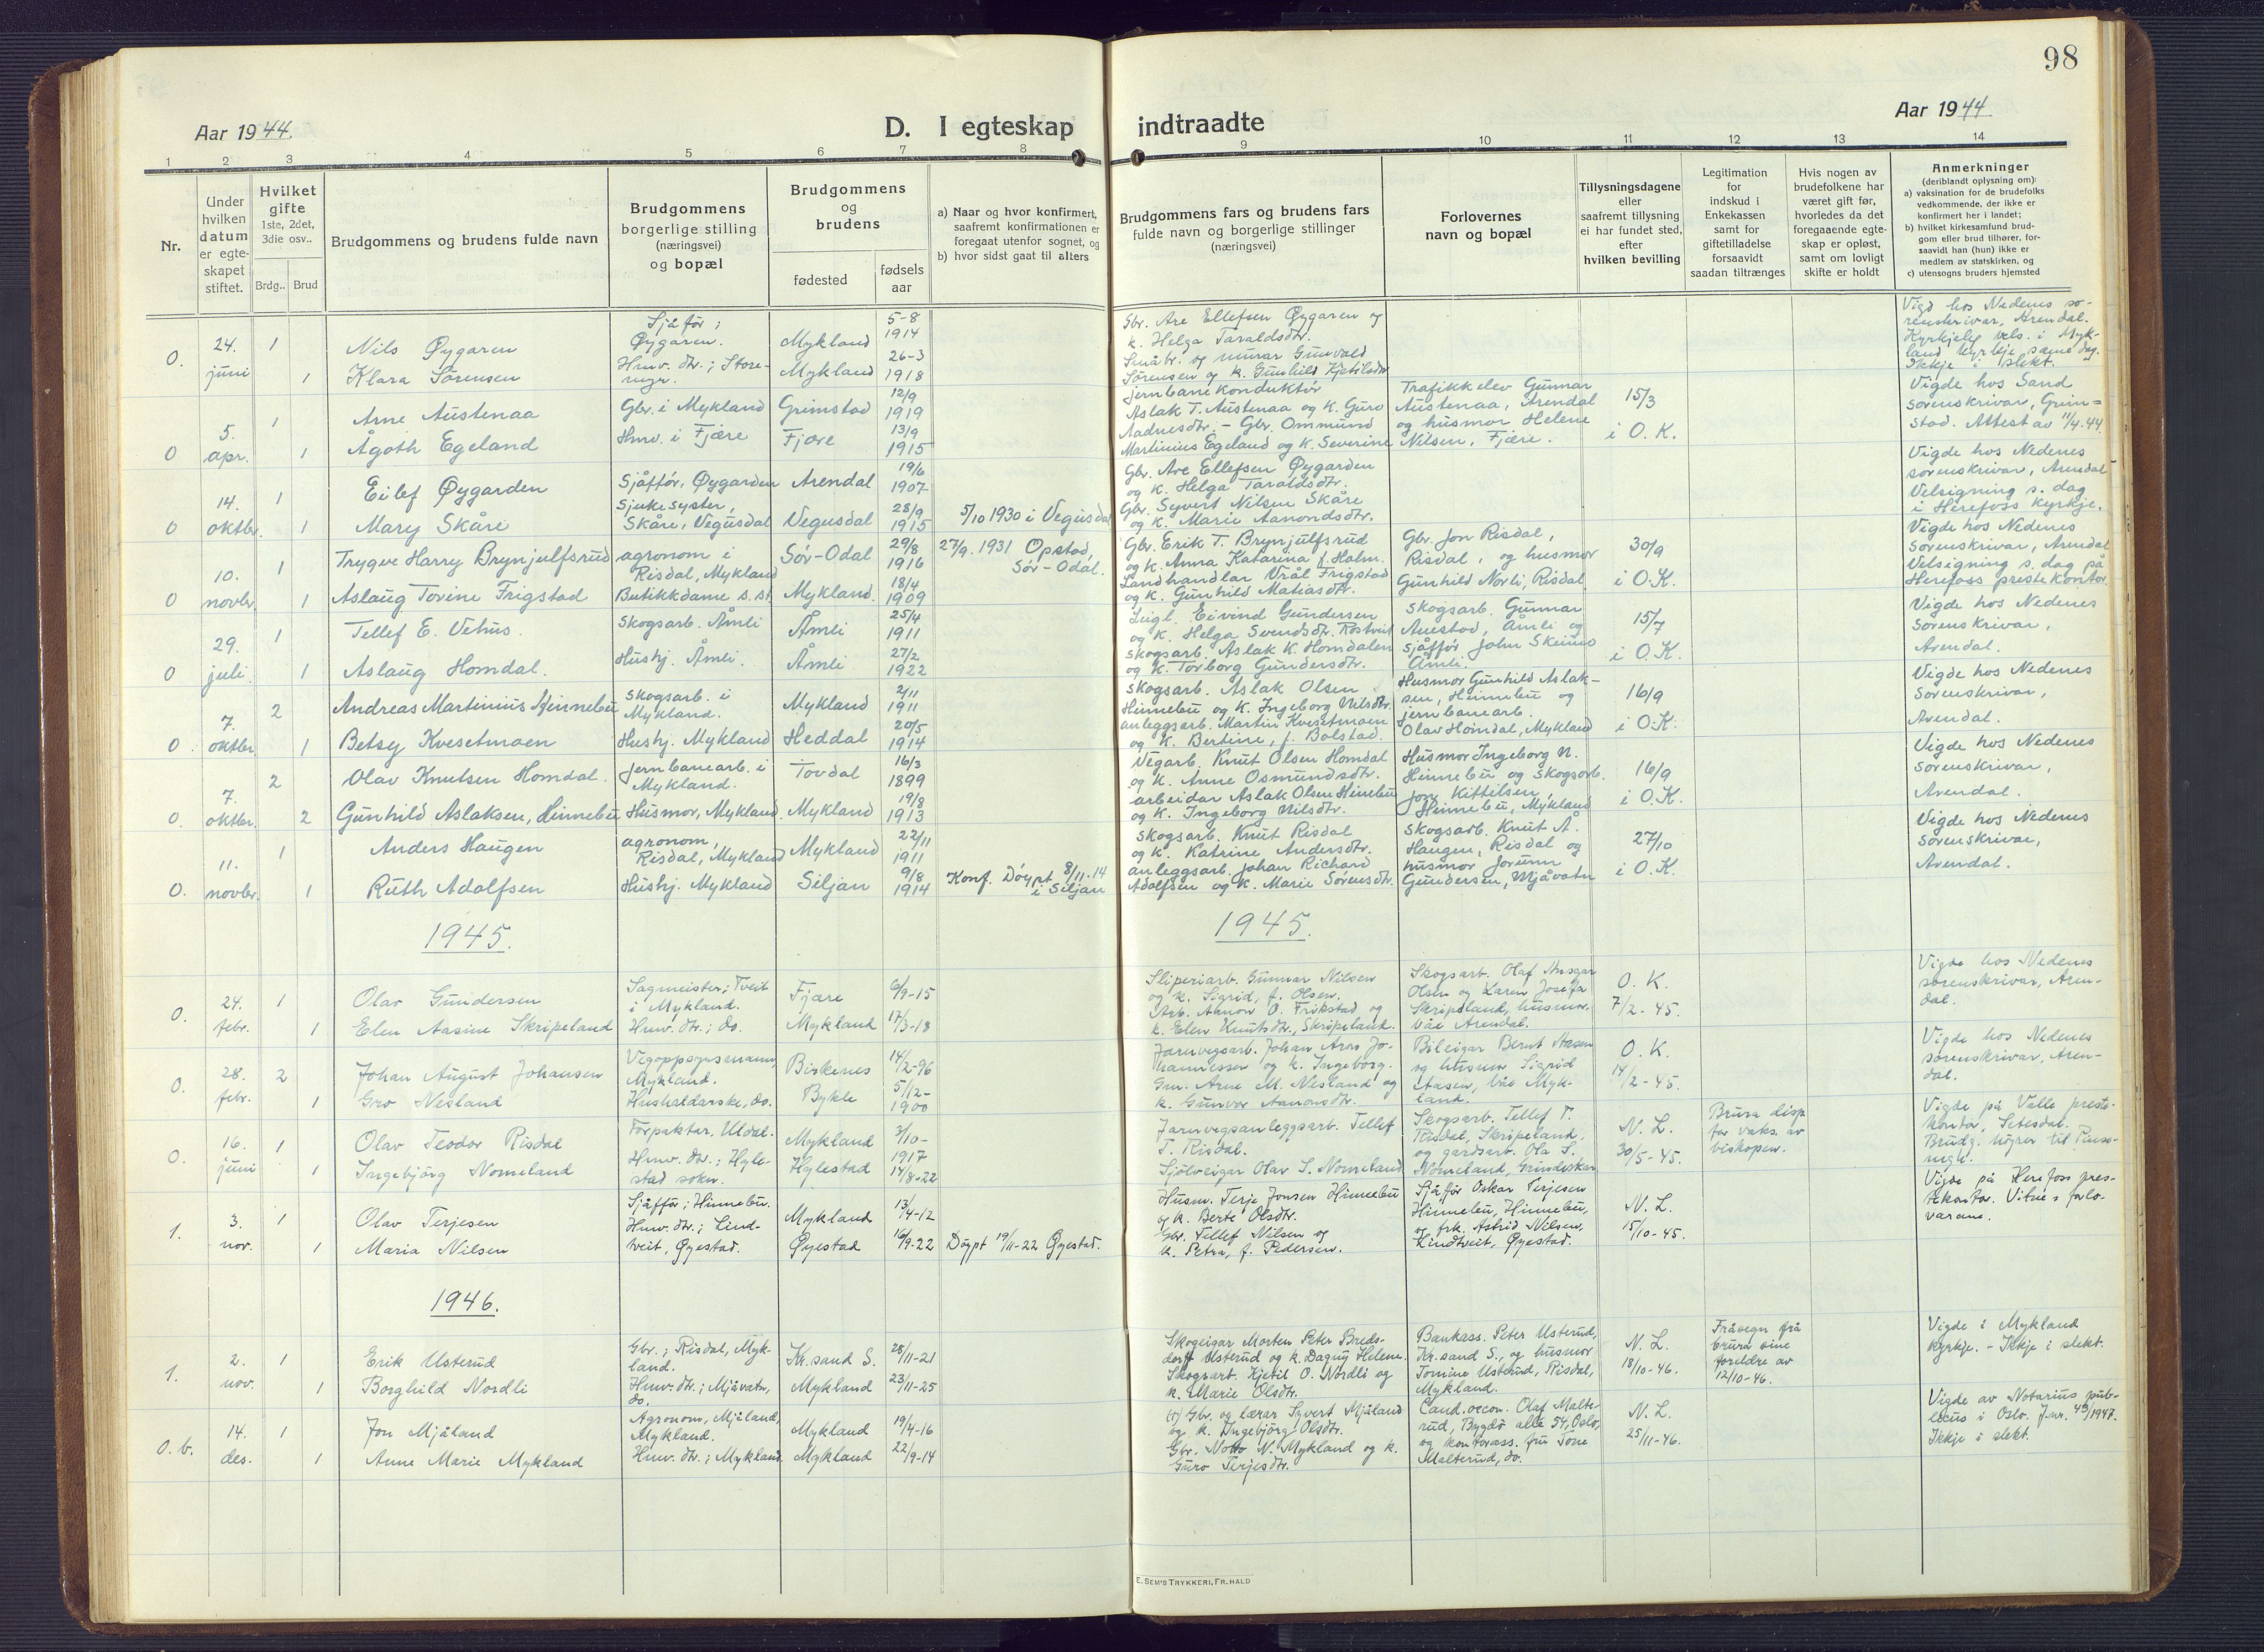 98
Aar 1944.
D. I egteskap indtraadte
Aar 1944
1 2 3 4 5 6 7 8 9 10 11 12 13 14
Nr.
Under
hvilken
datum
er egte-
skapet
stiftet.
Hvilket
gifte
1ste, 2det,
3die osv..
Brdg.. Brud
Brudgommens og brudens fulde navn
Brudgommens
borgerlige stilling
(næringsvei)
og bopæl
Brudgommens
og
brudens
fødested
fødsels
aar
a) Naar og hvor konfirmert,
saafremt konfirmationen er
foregaat utenfor sognet, og
b) hvor sidst gaat til alters
Brudgommens fars og brudens fars
fulde navn og borgerlige stillinger
(næringsvei)
Forlovernes
navn og bopæl
Tillysningsdagene
eller
saafremt tillysning
ei har fundet sted,
efter
hvilken bevilling
Legitimation
for
indskud i
Enkekassen
samt for
giftetilladelse
forsaavidt
saadan tiltrænges
Hvis nogen av
brudefolkene har
været gift før,
hvorledes da det
foregaaende egte-
skap er opløst,
samt om lovligt
skifte er holdt
Anmerkninger
(deriblandt oplysning om):
a) vaksination for de brudefolks
vedkommende, der ikke er
konfirmert her i landet;
b) hvilket kirkesamfund brud-
gom eller brud tilhører, for-
saavidt han (hun) ikke er
medlem av statskirken, og
c) utensogns bruders hjemsted
0. 24. juni
1
Nils Øygaren
Sjåfør;
Øygaren.
Mykland
5-8
1914
1
Klara Sörensen
Hmv. dtr.; Store-
Mykland
26-3
1918
Gbr. Are Ellefsen Øygaren og
k. Helga Taraldsdtr.
Småbr. og murar Gunvald
Sörensen og k. Gunhild Kjetilsdtr
Vigd hos Nedenes so-
renskrivar, Arendal.
Kyrkjeleg vels. i Myk-
land kyrkje same dag.
Ikkje i slekt.
0 5. apr.
1
Arne Austenaa
Gbr. i Mykland
Grimstad
12/9
1919
1
Ågoth Egeland
Hmv. i Fjære
Fjære
13/9
1915
jernbanekonduktör
Aslak T. Austenaa og K. Guro
Aadnesdtr. - Gbr. Ommund
Martinius Egeland og K. Severine
Trafikkelev Gunnar
Austenaa, Arendal
og husmor Helene
Nilsen, Fjære.
15/3
i O. K.
Vigde hos Sand
sorenskrivar, Grim=
stad. Attest av 11/4.44.
0 14. oktbr.
1
Eilef Øygarden
Sjåfför, Øygarden
Arendal
19/6
1907
1
Mary Skåre
Sjukesyster,
Skåre, Vegusdal
Vegusdal
28/9
1915
5/10 1930 i Vegusdal
Gbr. Are Ellefsen Øygarden
og K. Helga Taraldsdtr.
Gbr. Syvert Nilsen Skåre
og K. Marie Aamondsdtr.
Vigde hos Nedenes
sorenskrivar, Arendal
Velsigning s. dag
i Herefoss kyrkje.
0 10. novbr.
1
Trygve Harry Brynjulfsrud
agronom i
Risdal, Mykland
Sör-Odal
29/8
1916
27/9. 1931 Opstad,
Sör-Odal.
1
Aslaug Tovine Frigstad
Butikkdame s.st.
Mykland.
18/4
1909
Gbr. Erik T. Brynjulfsrud
og K. Anna Katarina f. Holm.
Landhandlar Vrål Frigstad
og K. Gunhild Matiasdtr.
Gbr. Jon Risdal,
Risdal, og husmor
Gunhild Norli, Risdal
30/9
i O.K.
Vigde hos Nedenes
Sorenskrivar, Arendal
Velsigning s. dag på
Herefoss prestekontor.
0 29. juli
1
Tellef E. Vehus.
Skogsarb. Åmli
Åmli
25/4
1911
1
Aslaug Homdal.
Hushj. Åmli.
Åmli
27/2
1922
Leigl. Eivind Gundersen
og K. Helga Svendsdtr. Rostveit
skogsarb. Aslak K. Homdalen
og K. Torborg Gundersdtr.
Skogsarb. Gunnar
Auestad, Åmli og
sjåfför John Skeimo
Åmli.
15/7
i O.K.
Vigde hos Nedenes
Sorenskrivar,
Arendal.
0 7. oktbr.
2
Andreas Martinius Hinnebu
skogsarb. i
Mykland.
Mykland
2/11
1911
1
Betsy Kvesetmoen
Hushj. Mykland
Heddal
20/5
1914
skogsarb. Aslak Olsen
Hinnebu og K. Ingeborg Nilsdtr.
anleggsarb. Martin Kvesetmoen
og K. Bertine, f. Bolstad.
Husmor Gunhild Aslak-
sen, Hinnebu og
jernbanearb.
Olav Homdal, Mykland
16/9
i O.K.
Vigde hos Nedenes
Sorenskrivar,
Arendal.
0. 7. oktbr.
2
Olav Knutsen Homdal.
jernbanearb. i
Mykland.
Tovdal
16/3
1899
2
Gunhild Aslaksen, Hinnebu
Husmor, Mykland.
Mykland
19/8
1913
Vegarb. Knut Olsen Homdal
og K. Anne Osmundsdtr.
arbeidar Aslak Olsen Hinnebu
og K. Ingeborg Nilsdtr.
Husmor Ingeborg N.
Hinnebu og Skogsarb.
Jon Kittilsen,
Hinnebu, Mykland
16/9
i O.K.
Vigde hos Nedenes
sorenskrivar,
Arendal.
0. 11. novbr.
1
Anders Haugen
agronom,
Risdal, Mykland
Mykland
22/11
1911
1
Ruth Adolfsen
Hushj. Mykland
Siljan
9/8
1914
Konf. Döypt 8/11-14
i Siljan
skogsarb. Knut Risdal
og K. Katrine Andersdtr.
anleggsarb. Johan Richard
Adolfsen og K. Marie Sörensdtr.
skogsarb. Knut Å.
Haugen, Risdal og
husmor Jorunn
Gundersen, Mjåvatn
27/10
i O.K.
Vigde hos Nedenes
Sorenskrivar,
Arendal.
1945. 1945.
0. 24. febr.
1
Olav Gundersen
Sagmeister; Tveit
i Mykland.
Fjære
6/9-15
1
Elen Aasine Skripeland
Hmv. dtr.; do.
Mykland
17/3-18
Sliperiarb. Gunnar Nilsen
og k. Sigrid, f. Olsen.
k. Elen Knutsdtr., Skripeland.
Skogsarb. Olaf Ansgar
Olsen og Karen Josefa
Skripeland, husmor,
Arendal.
O. K.
7/2-45.
Vigde hos Nedenes
sorenskrivar, Aren-
dal.
0. 28. febr.
2
Johan August Johansen
Vegoppsynsmann,
Mykland.
Biskenes
14/2-96
1
Gro Nesland
Hushaldarske, do.
Bykle
5/12-
1900
Jarnvegsarb. Johan Jo-
hannessen og k. Ingeborg.
Gm. Arne M. Nesland og
k. Gunvor Aanonsdtr.
Bileigar Bernt Aasen
og husmor Sigrid
Aasen, Myk-
land.
O. K.
14/2-45.
Vigde hos Nedenes
sorenskrivar, Aren-
dal.
0. 16. juni
1
Olav Teodor Risdal
Forpaktar, Uldal.
Mykland
3/10-
1917
1
Ingebjörg Nomeland
Hmv. dtr.; Hyle-
stad sokn.
Hylestad
14/8-22
Jarnvegsanleggsarb. Tellef
T. Risdal.
Sjölveigar Olav S. Nomeland
Skogsarb. Tellef T.
Risdal, Skripeland,
og gardsarb. Ola S.
Nomeland,
N. L.
30/5-45.
Brura disp.
for vaks. av
biskopen.
Vigde på Valle preste-
kontor, Setesdal.
Brudg. høyrer til
1. 3. nov.
1
Olav Terjesen
Sjåfför; Hinnebu.
Mykland
13/4-12
1
Maria Nilsen
Hmv. dtr.; Lind-
tveit, Øyestad.
Øyestad
16/9-22
Döypt 19/11-22 Øyestad.
Husm. Terje Jonsen Hinnebu
og k. Berte Olsdtr.
Gbr. Tellef Nilsen og
k. Petra, f. Pedersen.
Sjåfför Oskar Terjesen
Hinnebu, Hinnebu,
og frk. Astrid Nilsen,
Lindtveit, Øyestad.
N. L.
15/10-45.
Vigde på Herefoss pres-
tekontor. Vitne: forlo-
varane.
1946.
1. 2. nov.
1
Erik Usterud
Gbr.; Risdal, Myk-
land.
Kr.sand S.
28/11-21
1
Borghild Nordli
Hmv. dtr.; Mjåvatn,
do.
Mykland
23/11-25
Skogeigar Morten Peter Breds-
dorff Usterud og k. Dagny Helene.
Skogsarb. Kjetil O. Nordli og
k. Marie Olsdtr.
Bankass. Peter Usterud,
Kr.sand S., og husmor
Tomine Usterud, Risdal,
Mykland.
N. L.
18/10-46.
Fråsegn frå
brura sine
foreldre av
12/10-46.
Vigde i Mykland
kyrkje. - Ikkje i slekt.
0.b. 14. des.
1
Jon Mjåland
Agronom, Mjåland,
Mykland.
Mykland
19/4-16
1
Anne Marie Mykland
Hmv. dtr.; Mykland.
Mykland
22/9-14
Gbr. og lærar Syvert Mjåland
og k. Ingebjörg Olsdtr.
Gbr. N. Mykland og k.
Guro Terjesdtr.
Cand. oecon. Olaf Malte-
rud, Bygdö alle 54, Oslo,
og kontorass. fru Tone
Malterud, do.
N. L.
25/11-46.
Vigde av Notarius pub-
licus i Oslo.
Ikkje i slekt.
E. SEM'S TRYKKERI, FR. HALD